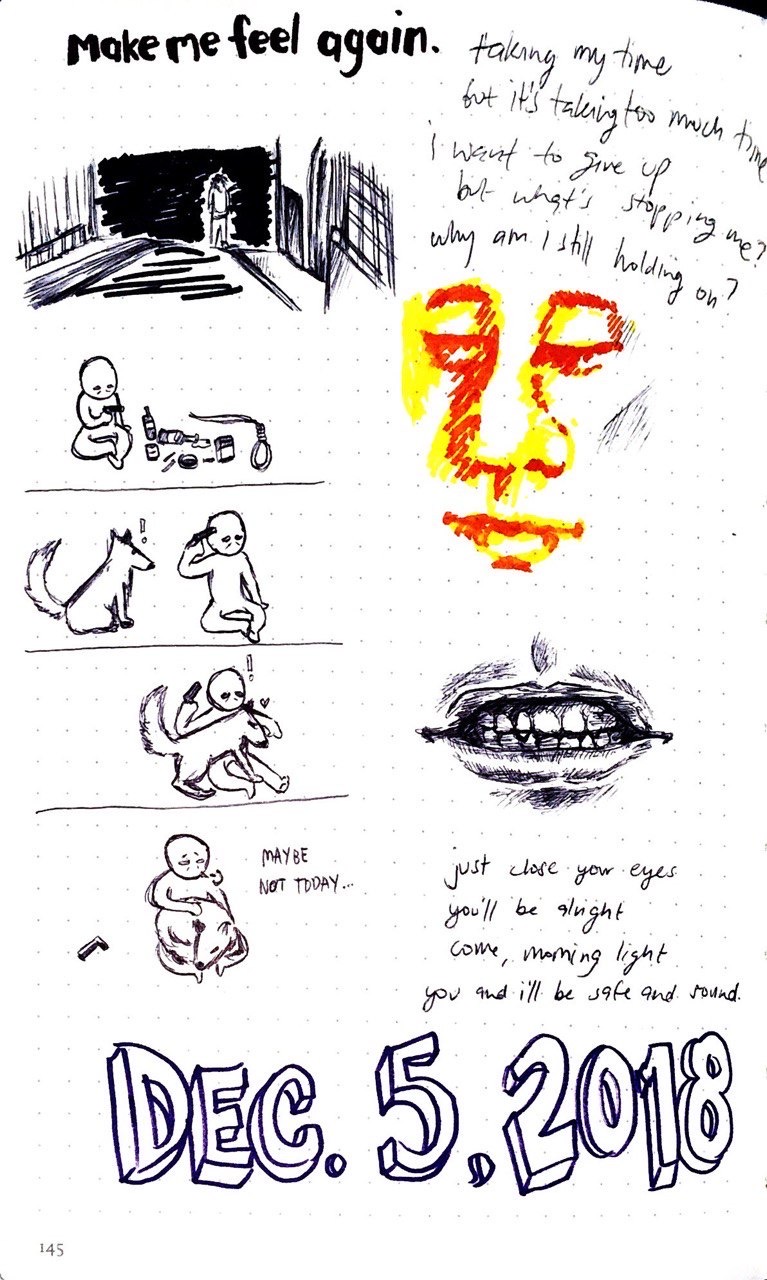 make me feel again.
taking my time
but it's taking too much time
i want to give up
but what's stopping me?
why am i still holding on?
!
!
MAYBE
NOT TODAY...
just close your eyes
you'll be alright
come, morning light
you and i'll be safe and sound.
DEC. 5, 2018
145